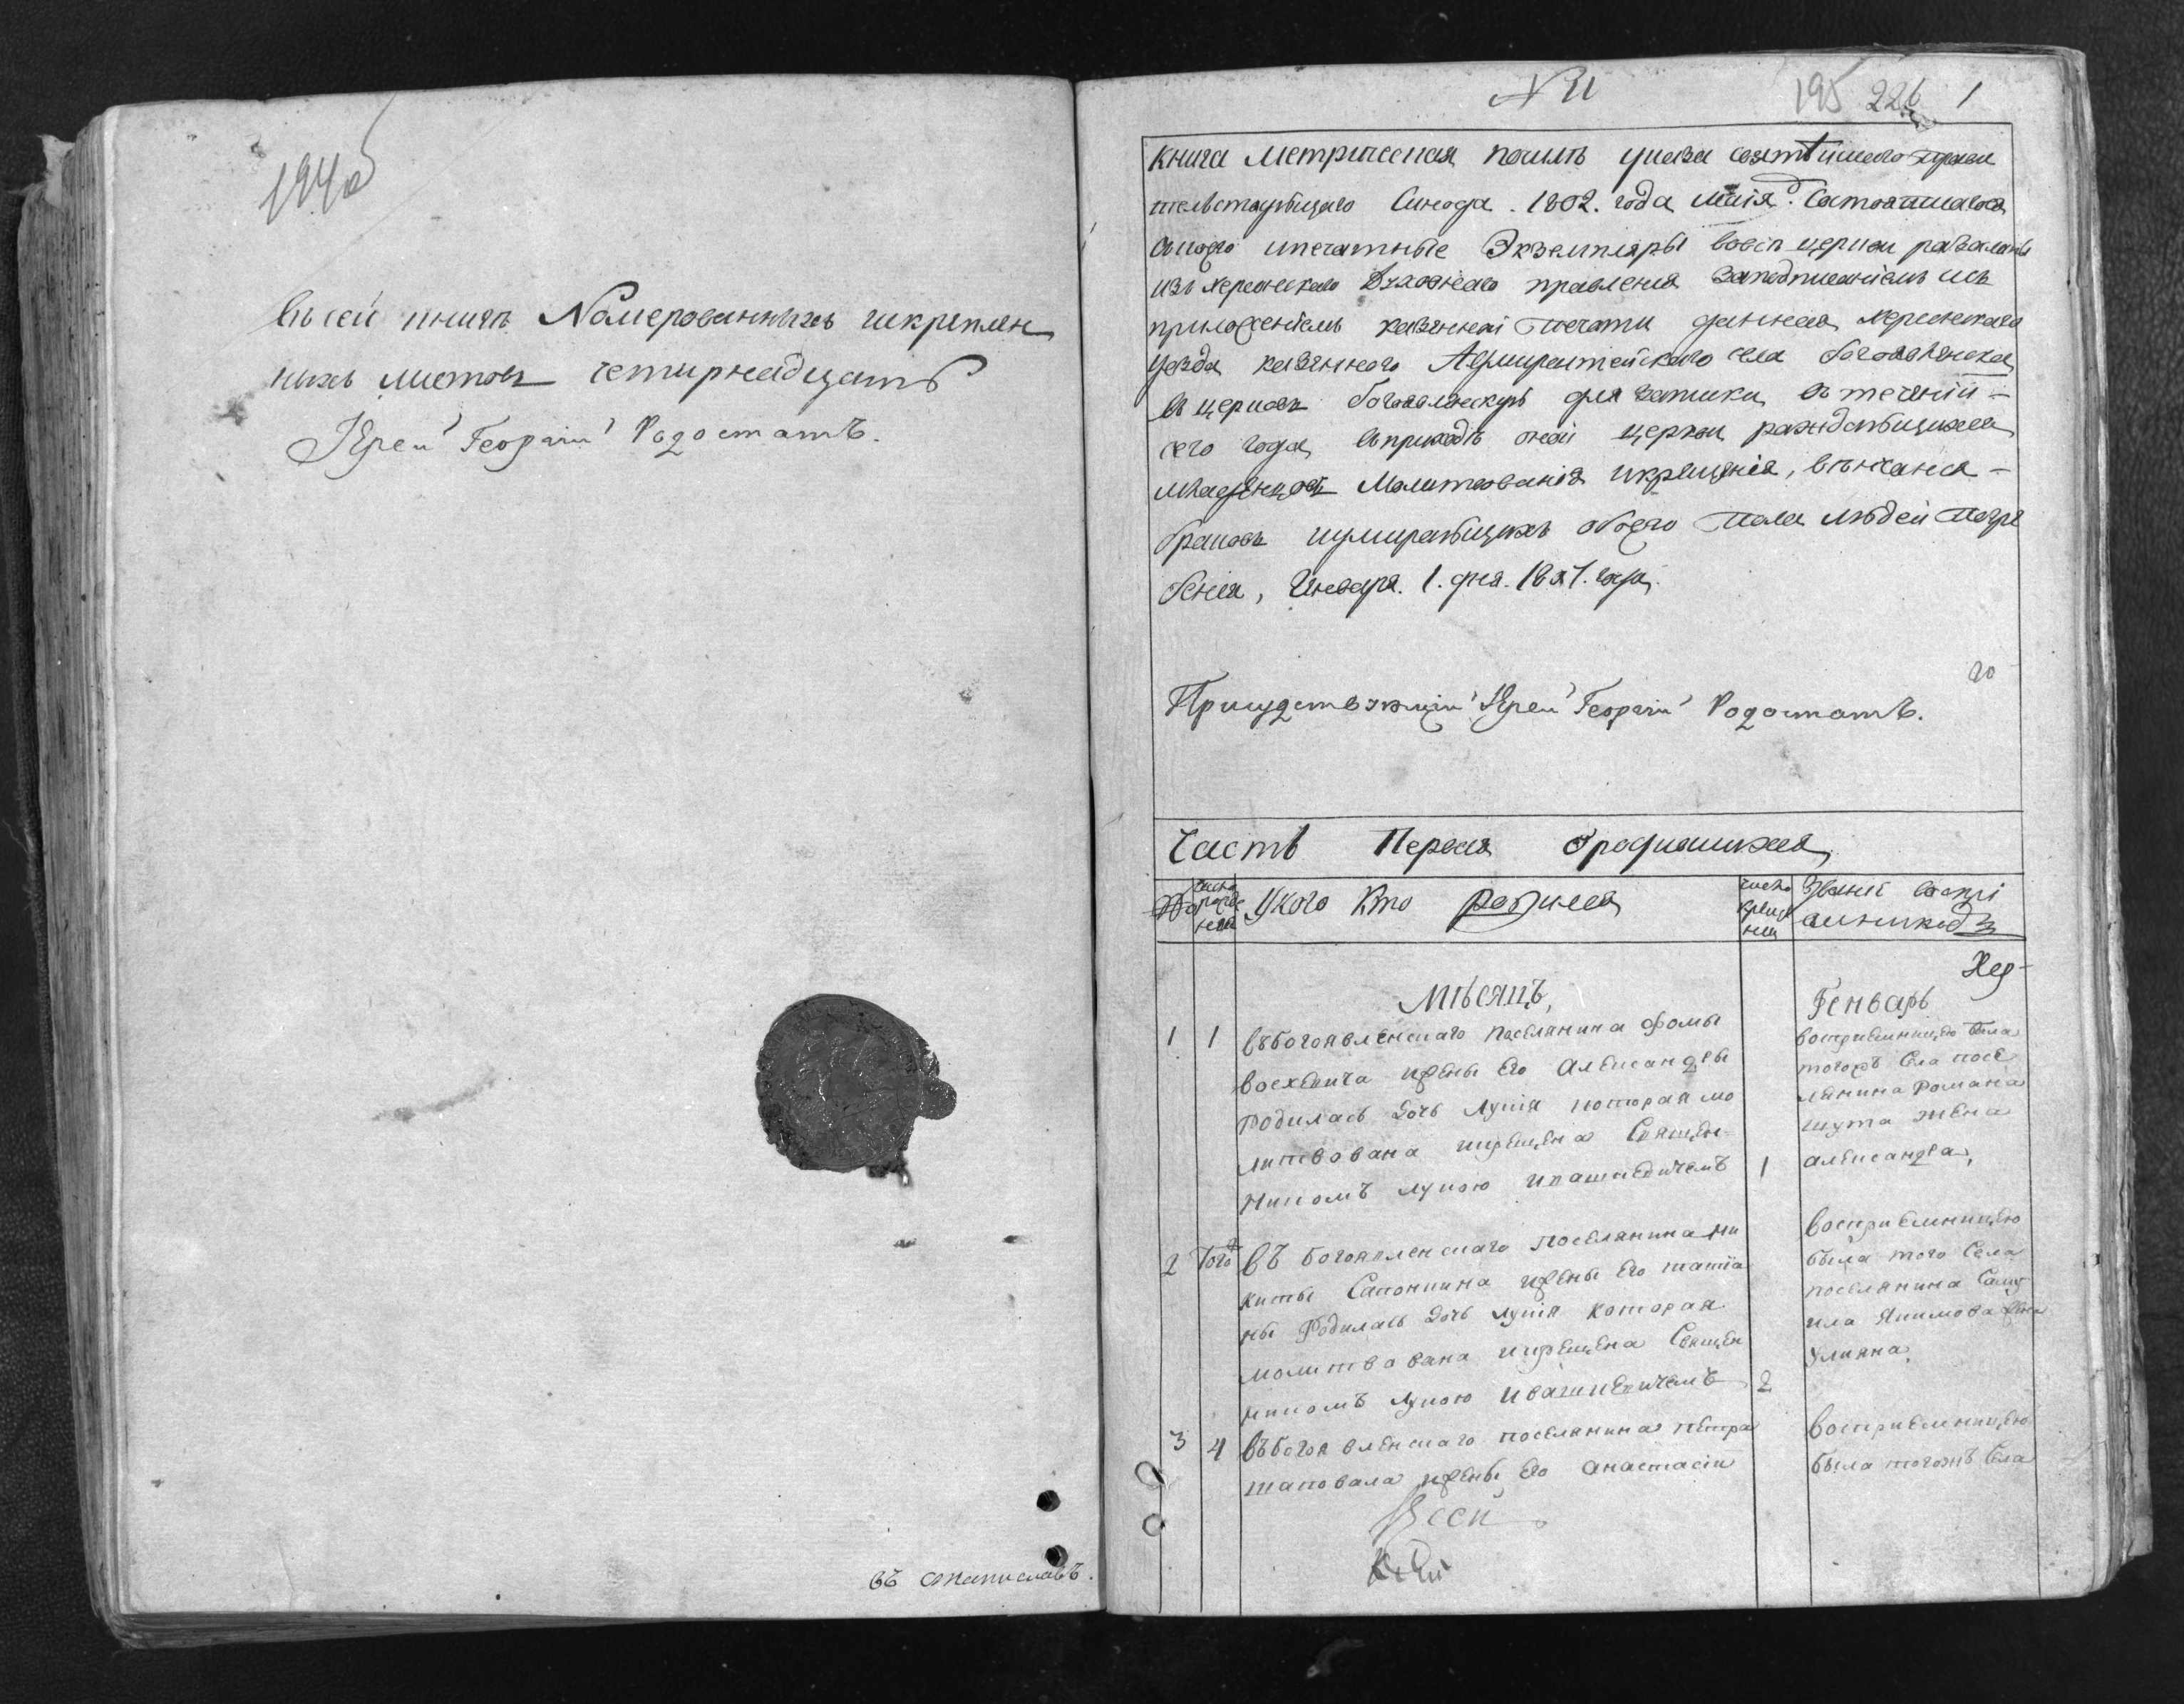 194об
Въ сей книгѣ Номерованныхъ икреплен
ныхъ листовъ четирнайдцать
Іерей Георгій Родостатъ.
въ станиславъ.
№ 11
195 226 1
Книга Метрическая посилѣ указа святѣйшаго прави
тельствующаго Синода. 1802. года маія. Состоявшагося
скоего ипечатные Экземпляры всеѣ церкви разъсланы
изъ херсонскаго Духовнаго правления заподписаніемъ исъ
приложеніемъ казенной печати данная херсонскаго
уезда казеннаго Адмиралтейскаго села богоявленска
въ церковь богоявленскую для записки въ теченіи
сего года въприходѣ оной церкви раждающихся
младенцовъ Молитвованія икрещенія, вѣнчанія
браковъ иумирающихъ обоего пола людей погре
бения, Января. 1. дня. 1807. года.
Присудствующій Іерей Георгій Родостатъ.
Часть Первая Ородившихся
число рожде ния
Укого Кто Родился
число креще нии
Званіе воспрі емниковъ
Мѣсяцъ, Генварь
1 1 въбогоявленскаго поселянина Фомы
ижены его Александры
Родилась дочь Лукія которая мо
литвована икрещена Священ
никомъ Лукою Ивашкевичемъ 1
восприемницею была
тогожъ села посе
лянина Романа
шута жена
александра,
2 Того въ богоявленскаго поселянина ни
киты Сапонкина ижены его татіа
ны Родилась дочь лукія которая
молитвована икрещена Священ
никомъ Лукою ивашкевичемъ 2
восприемницею
была того Села
поселянина Саму
ила Якимова жена
Улияна,
3 4 въбогоявленскаго поселянина петра
шаповала ижены его анастасіи
восприемницею
была тогожъ Села